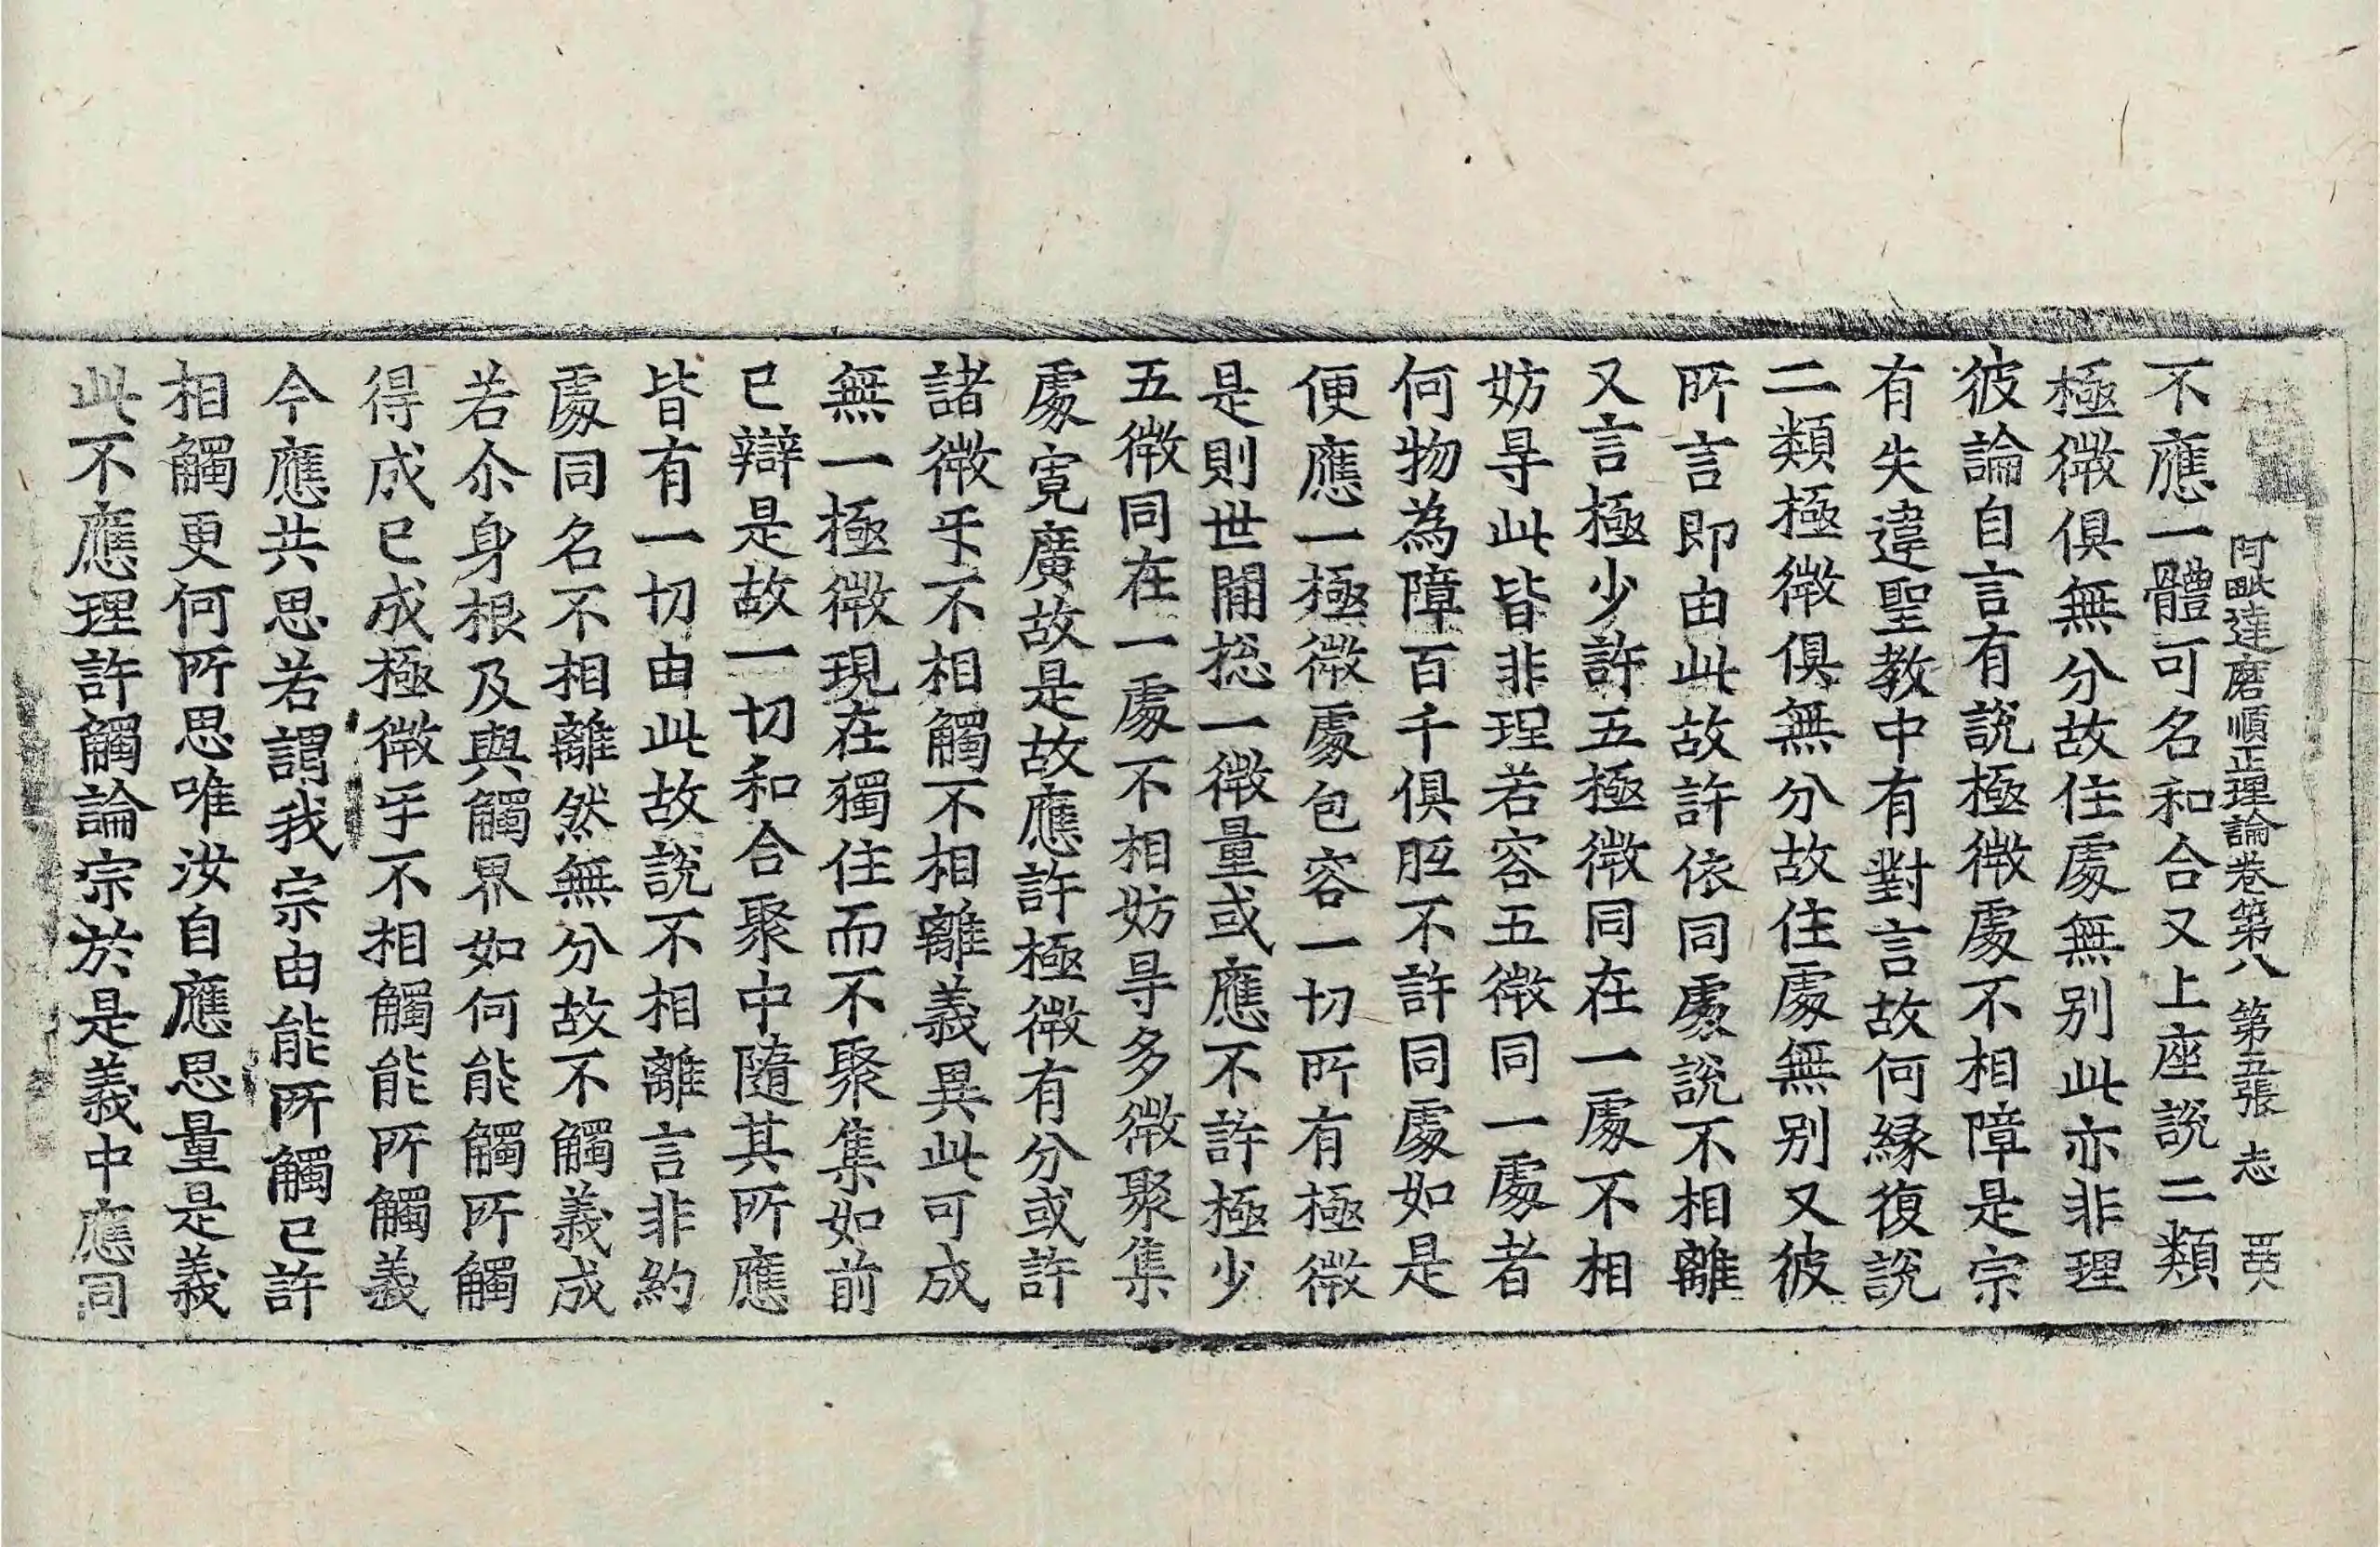 阿毗達磨順正理論卷第八 第五張 志
不應一體可名和合又上座說二類
極微俱無分故住處無別此亦非理
彼論自言有說極微處不相障是宗
有失違聖教中有對言故何緣復說
二類極微俱無分故住處無別又彼
所言即由此故許依同處說不相離
又言極少許五極微同在一處不相
妨㝵此皆非理若容五微同一處者
何物為障百千俱胝不許同處如是
便應一極微處包容一切所有極微
是則世間捴一微量或應不許極少
五微同在一處不相妨㝵多微聚集
處寬廣故是故應許極微有分或許
諸微㸦不相觸不相離義異此可成
無一極微現在獨住而不聚集如前
已辯是故一切和合聚中隨其所應
皆有一切由此故說不相離言非約
處同名不相離然無分故不觸義成
若尒身根及與觸界如何能觸所觸
得成已成極微㸦不相觸能所觸義
今應共思若謂我宗由能所觸已許
相觸更何所思唯汝自應思量是義
此不應理許觸論宗於是義中應同